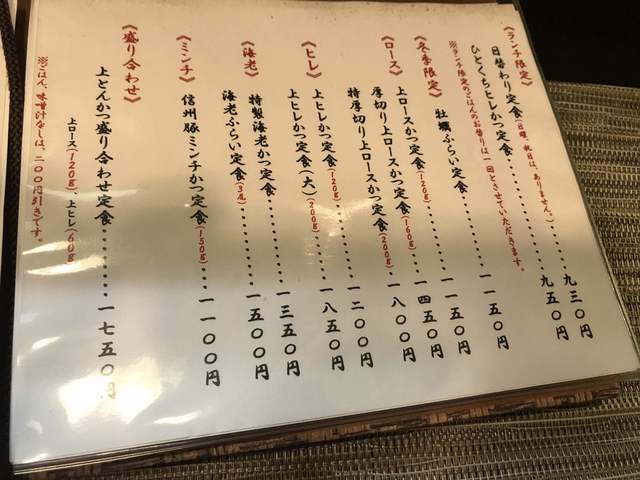 《ランチ限定》
日替わり定食(日曜、祝日は、ありません。)‥‥九三〇円
ひとくちヒレかつ定食‥‥‥‥‥‥九五〇円
※ランチ限定のごはんのお替りは一回とさせていただきます。
《冬季限定》
牡蠣ふらい定食‥‥‥‥‥一一五〇円
《ロース》
上ロースかつ定食(120g)‥‥‥一一五〇円
厚切り上ロースかつ定食(160g)‥一四五〇円
特厚切り上ロースかつ定食(200g)‥一八〇〇円
《ヒレ》
上ヒレかつ定食(120g)‥‥‥一二〇〇円
上ヒレかつ定食(大)(200g)‥‥一八五〇円
《海老》
特製海老かつ定食‥‥‥‥一三五〇円
海老ふらい定食(3尾)‥‥‥一五〇〇円
《ミンチ》
信州豚ミンチかつ定食(150g)‥‥一一〇〇円
《盛り合わせ》
上とんかつ盛り合わせ定食‥‥‥‥一七五〇円
上ロース(120g)、上ヒレ(60g)
※ごはん、味噌汁なしは、二〇〇円引きです。